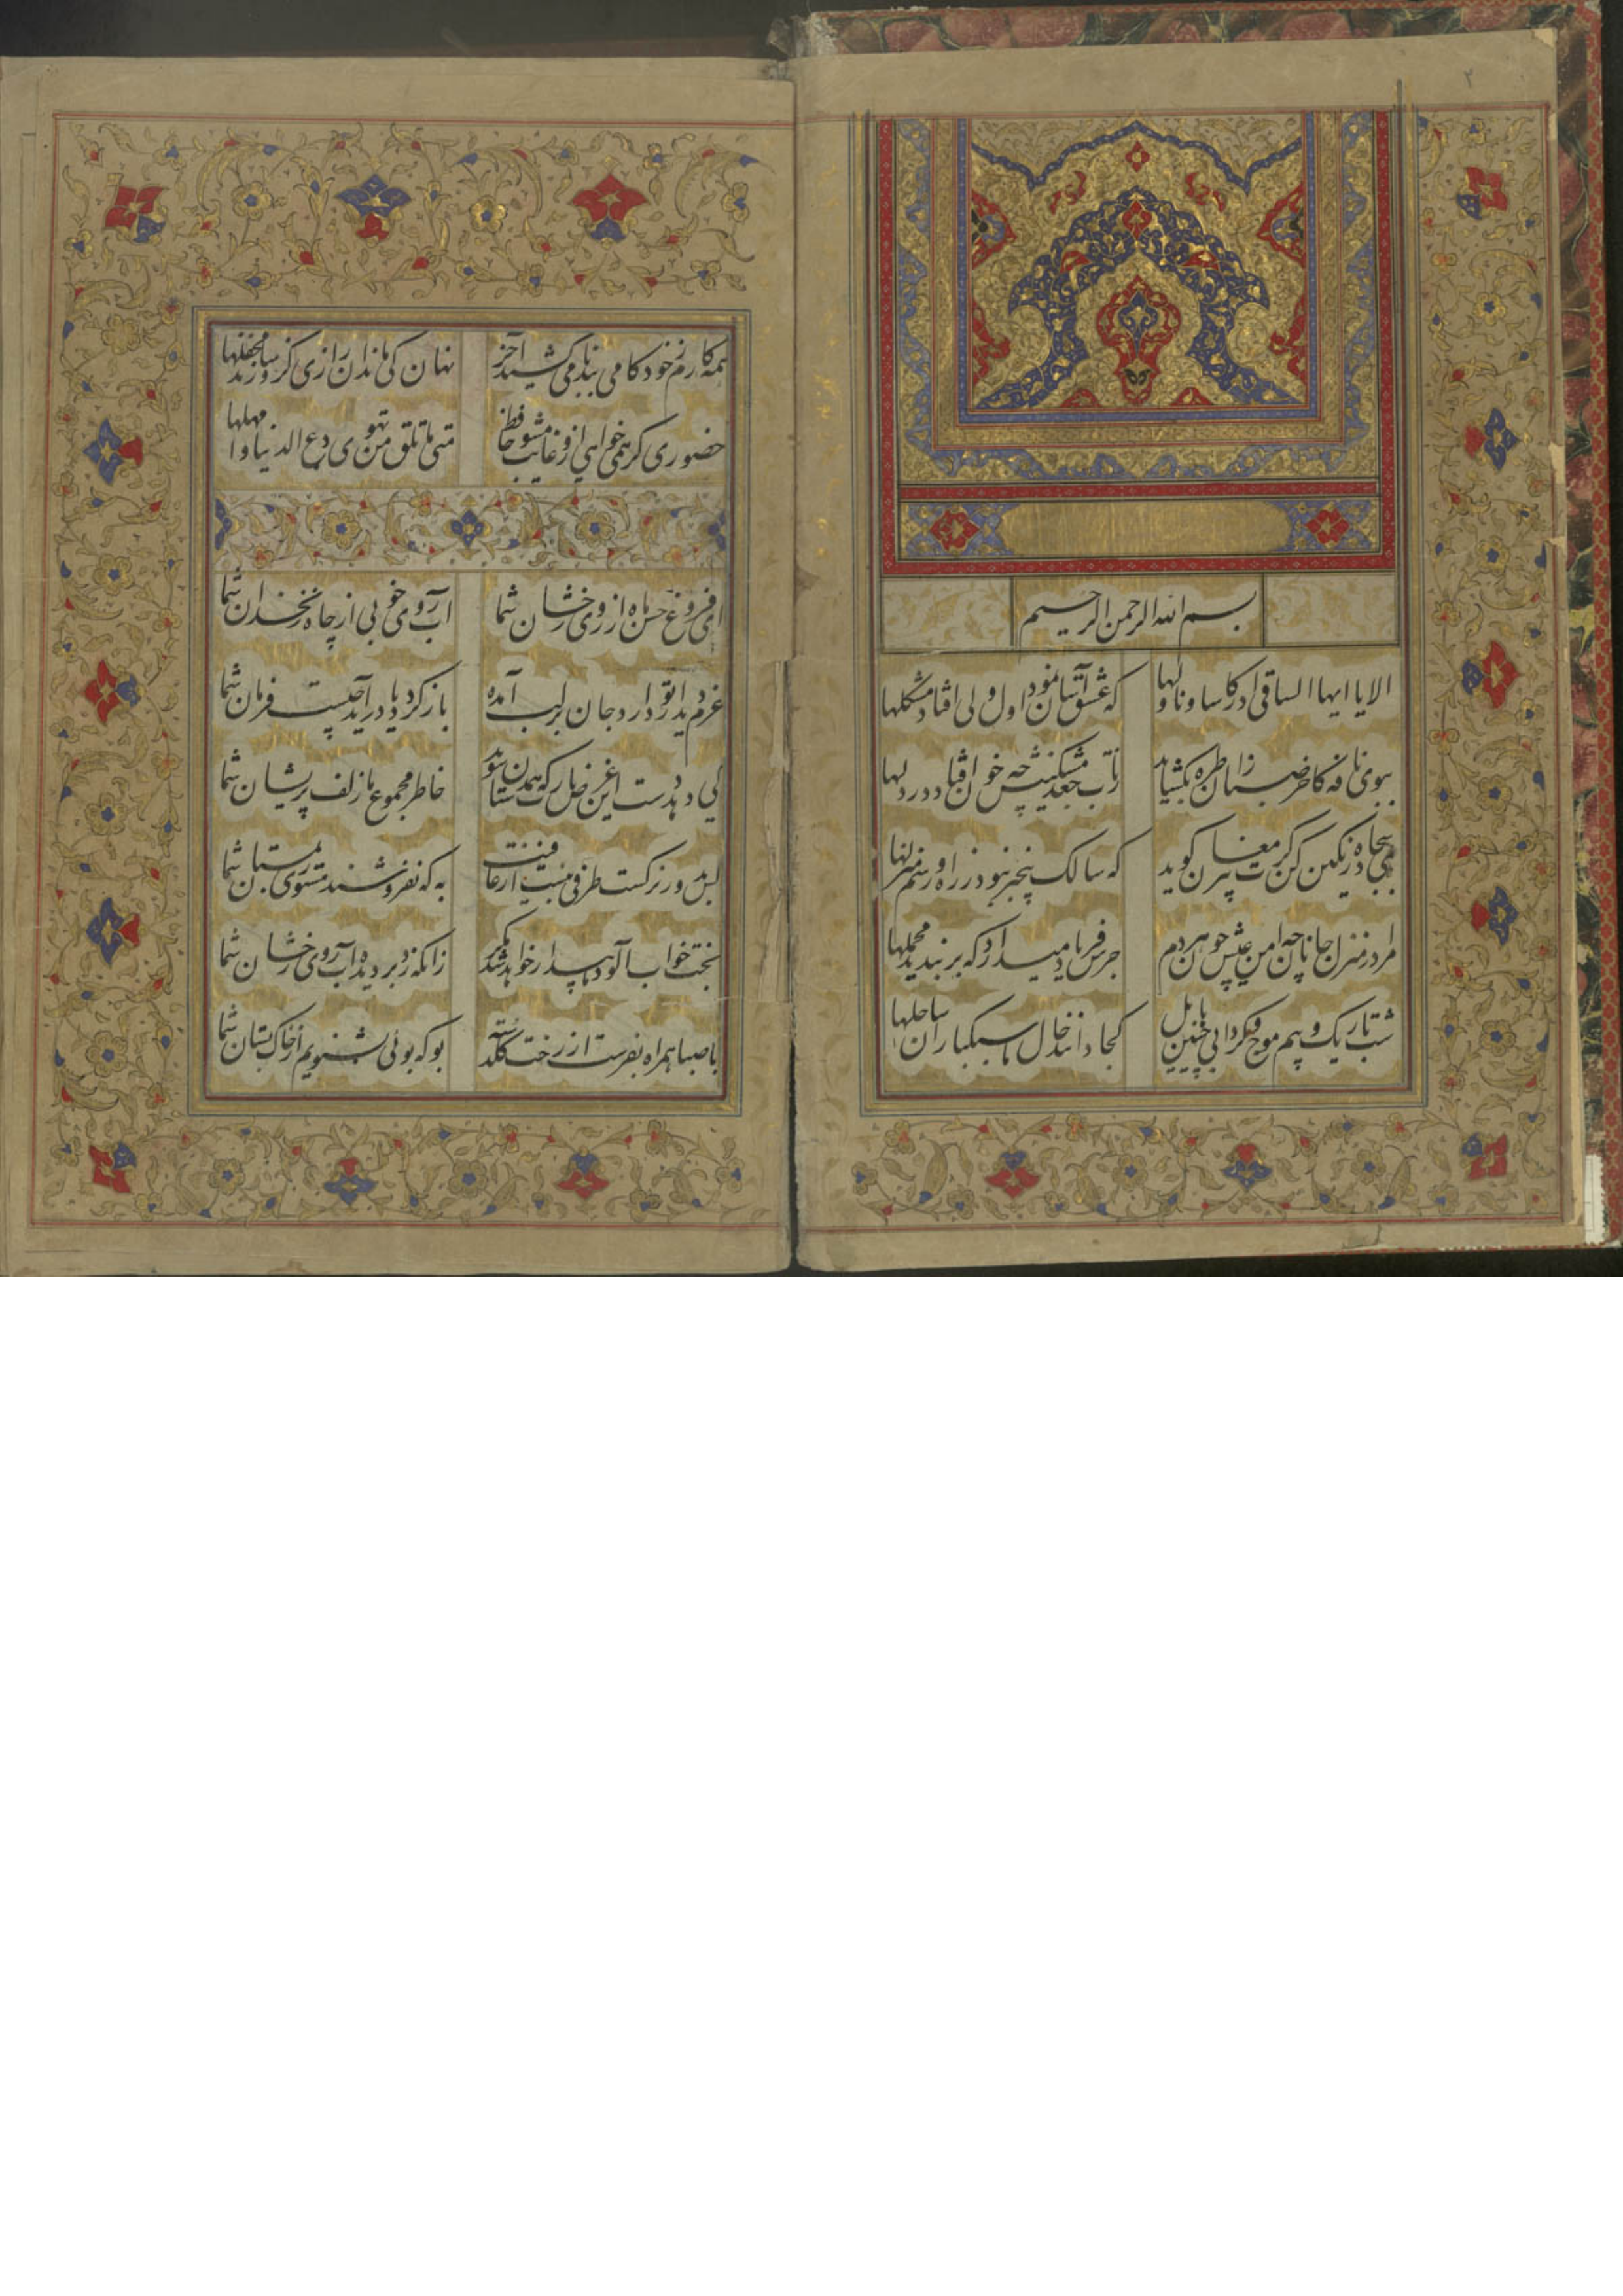 ۲
بسم الله الرحمن الرحیم
الا یا ایها الساقی ادر کاسا و ناولها که عشق آسان نمود اول ولی افتاد مشکلها
ببوی نافه کاخر صبا زان طره بکشاید ز تاب جعد مشکینش چه خون افتاد در دلها
بمی سجاده رنگین کن کرت پیر مغان کوید که سالک بیخبر نبود ز راه و رسم منزلها
مرا در منزل جانان چه امن عیش چون هر دم جرس فریاد میدارد که بربندید محملها
شب تاریک و بیم موج و کردابی چنین هایل کجا دانند حال ما سبکباران ساحلها
همه کارم ز خود کامی ببدنامی کشید آخر نهان کی ماند آن رازی کزو سازند محفلها
حضوری کر همی خواهی ازو غایب مشو حافظ متی ما تلق من تهوی دع الدنیا و اهملها
ای فروغ حسن ماه از روی رخشان شما آب روی خوبی از چاه زنخدان شما
عزم دیدار تو دارد جان بر لب آمده باز کردد یا در آید چیست فرمان شما
کی دهد دست این غرض یارب که همدستان شوند خاطر مجموع ما زلف پریشان شما
کس بدور نرکست طرفی نبست از عافیت به که نفروشند مستوری بمستان شما
بخت خواب آلود ما بیدار خواهد شد مکر زانکه زد بر دیده آب روی رخشان شما
با صبا همراه بفرست از رخت کلدسته بو که بوئی بشنویم از خاک بستان شما